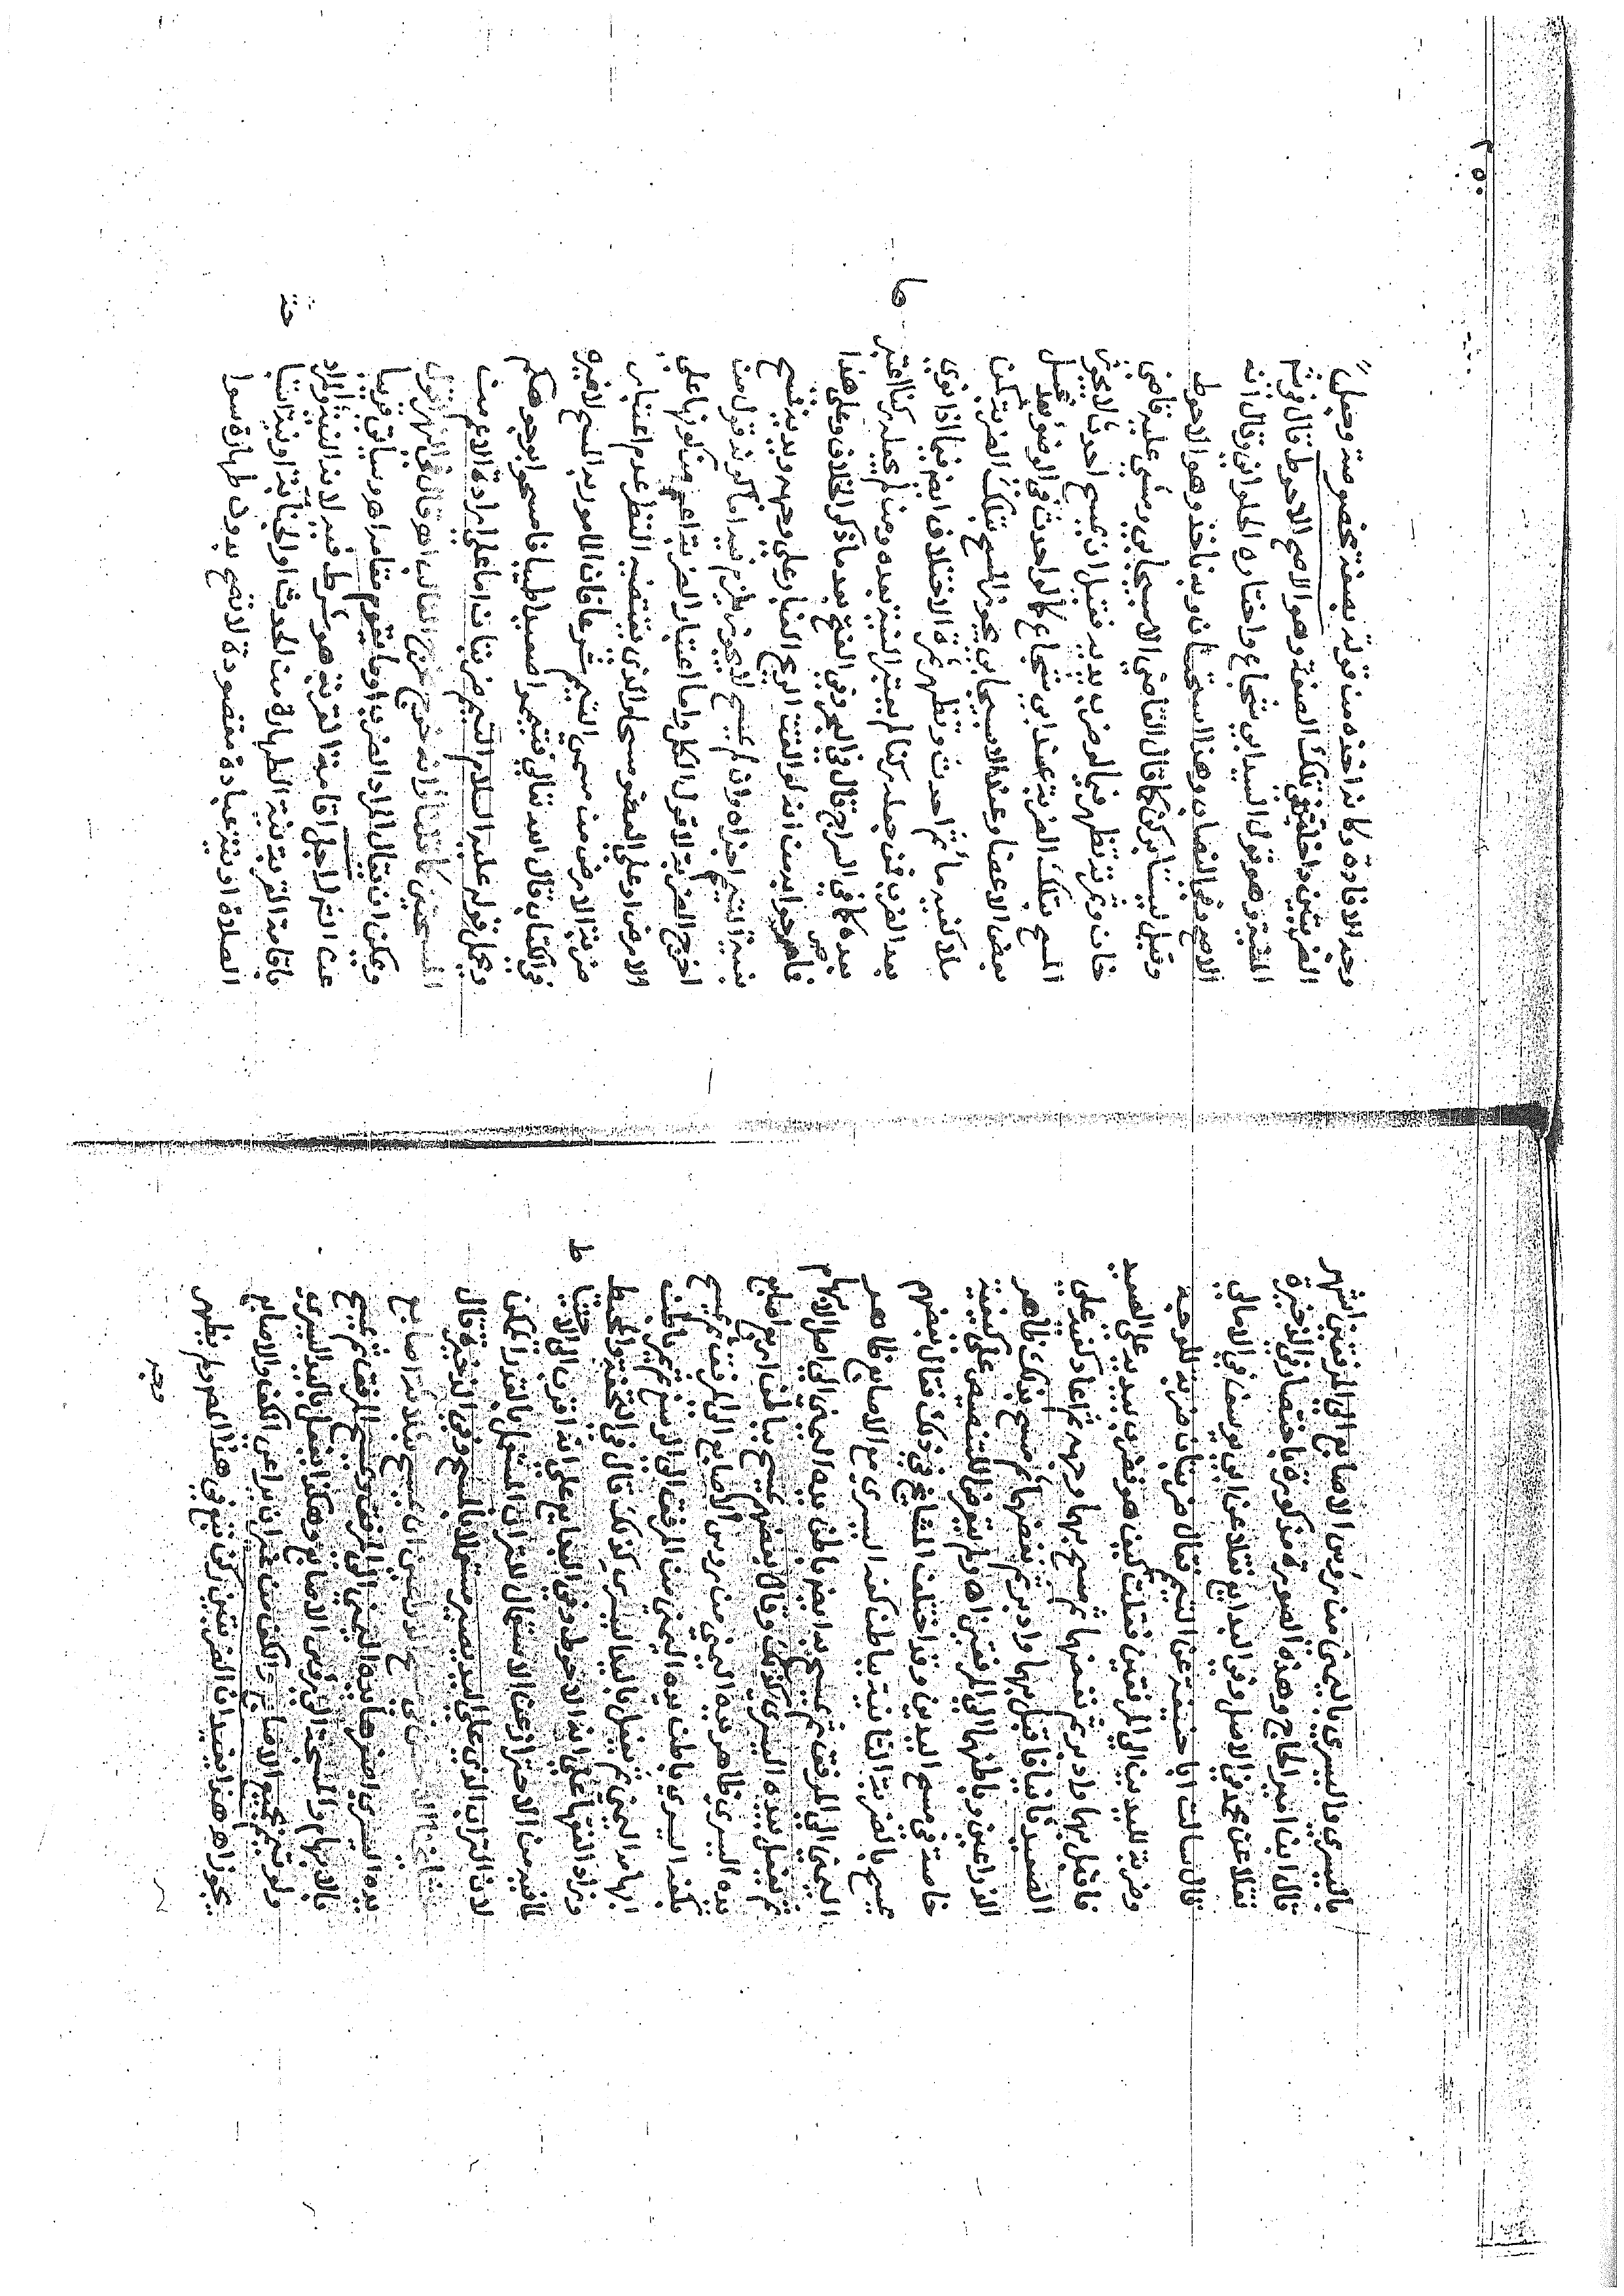 باليسرى واليسرى باليمنى من رؤس الاصابع الى المرفقين انتهى
قال ابن امير الحاج وهذه الصورة مذكورة باختصار في الذخيرة
نقلا عن محمد في الاصل وفي البدايع نقلا عن ابي يوسف في الامالي
قال سالت ابا حنيفة عن التيمم فقال ضربتان ضربة للوجه
وضربة لليدين الى المرفقين فقلت كيف هو فضرب بيديه على الصعيد
فاقبل بهما وادبر ثم نفضهما ثم مسح بهما وجهه ثم اعاد كفيه على
الصعيد ثانيا فاقبل بهما وادبر ثم نفضهما ثم مسح بذلك ظاهر
الذراعين وباطنهما الى المرفقين اه ولم يتعرض للتنصيص على كيفية
خاصة في مسح اليدين وقد اختلف المشايخ في ذلك فقال بعضهم
يمسح بالضربة الثانية بباطن كفه اليسرى مع الاصابع ظاهر
اليمنى الى المرفق ثم يمسح به ايضا باطن يده اليمنى الى اصل الابهام
ثم يفعل بيده اليسرى كذلك وقال بعضهم يمسح بباطن اربع اصابع
يده اليسرى ظاهر يده اليمنى من رؤس الاصابع الى المرفق ثم يمسح
بكفه اليسرى باطن يده اليمنى من المرفق الى الرسغ ثم يمر باطن
ابهامه اليمنى ثم يفعل باليد اليسرى كذلك قال في التحفة والمحيط
وزاد الفقهاء على انه الاحوط وفي البدايع على انه اقرب الى الاحتياط
لما فيه من الاحتراز عن الاستعمال للتراب المستعمل بالقدر الممكن
لان التراب الذي على اليد يصير مستعملا بالمسح وفي الذخيرة قال
مشايخنا الاحسن في مسح الذراعين ان يمسح بثلاث اصابع
يده اليسرى اصغرها يده اليمنى الى المرفق ويمسح المرفق ثم يمسح
بالابهام والمسبحة الى رؤس الاصابع وهكذا يفعل باليد اليسرى
ولو تيمم بجميع الاصابع والكف من غير ان يراعي الكف والاصابع
يجوز اه هذا يفيد ان الضربتين ركن تبع في هذا المص ولم يظهر
وجه
٢٥٠
وجه الافادة وكانه اخذه من قوله بصفة مخصوصة وجعل
الضربتين داخلتين تلك الصفة وهو الاصح الاحوط قال في شرح
المنية وهو قول السيد ابي شجاع واختاره الحلواني وقال انه
الاصح وفي النصاب وهذا استحسان وبه ناخذ وهو الاحوط
وقيل ليستا بركن كما قال القاضي الاسبيجابي ومشى عليه قاضي
خان وثمرته تظهر فيما لو ضرب يديه فقبل ان يمسح احدث لا يجوز
المسح بتلك الضربة عند ابي شجاع كما لو احدث في الوضوء بعد غسل
بعض الاعضا وعند الاسبيجابي يجوز المسح بتلك الضربة كمن
ملا كفيه ماء ثم احدث وتظهر ثمرة الاختلاف ايضا فيما اذا نوى
بعد الضرب فمن جعله ركنا لم يعتبر النية بعده ومن لم يجعله ركنا اعتبر
بعده كما في السراج قال في البحر وفي الفتح بعد ما ذكر الخلاف وعلى هذا
فما صرحوا به من انه لو القت الريح الغبار على وجهه ويديه فمسح
بنية التيمم اجزاه وان لم يمسح لا يجوز يلزم فيه اما كونه قول من
اخرج الضربة لا قول الكل واما اعتبار الضربة اعم من كونها على
الارض او على العضو مسحا والذي يقتضيه النظر عدم اعتبار
ضربة الارض من مسمى التيمم شرعا فان المامور به المسح لا غيره
في الكتاب قال الله تعالى فتيمموا صعيدا طيبا فامسحوا بوجوهكم
ويحمل قوله عليه السلام التيمم ضربتان اما على ارادة الاعم من
المسحتين كما قلنا او انه خرج مخرج الغالب اه وقال في النهر اقول
ويمكن ان يقال المراد الضرب او ما يقوم مقامه اه وسياتي قريبا
عن الشرح لاجل اقامة القربة هو شرط فيه لانه النية والمراد
باقامة القربة نية الطهارة من الحدث او الجنابة او نية استباحة
الصلاة او نية عبادة مقصودة لا تصح بدون طهارة سوا